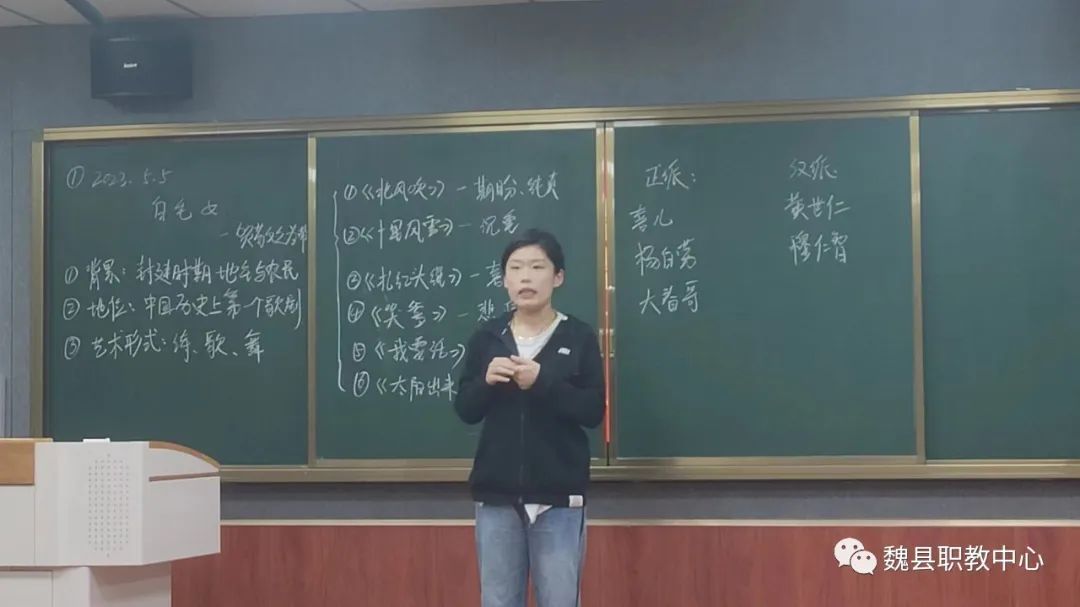 ① 2023.5.5
白毛女
① 背景：封建时期 地主与农民
② 地位：中国历史上第一个歌剧
③ 艺术形式：诗、歌、舞
①《北风吹》— 期盼、纯真
②《十里风雪》— 沉重
③《扎红头绳》— 喜
④《哭爹》— 悲
⑤《我要活》
⑥《太阳出来
正派：
喜儿
杨白劳
大春哥
反派
黄世仁
穆仁智
魏县职教中心